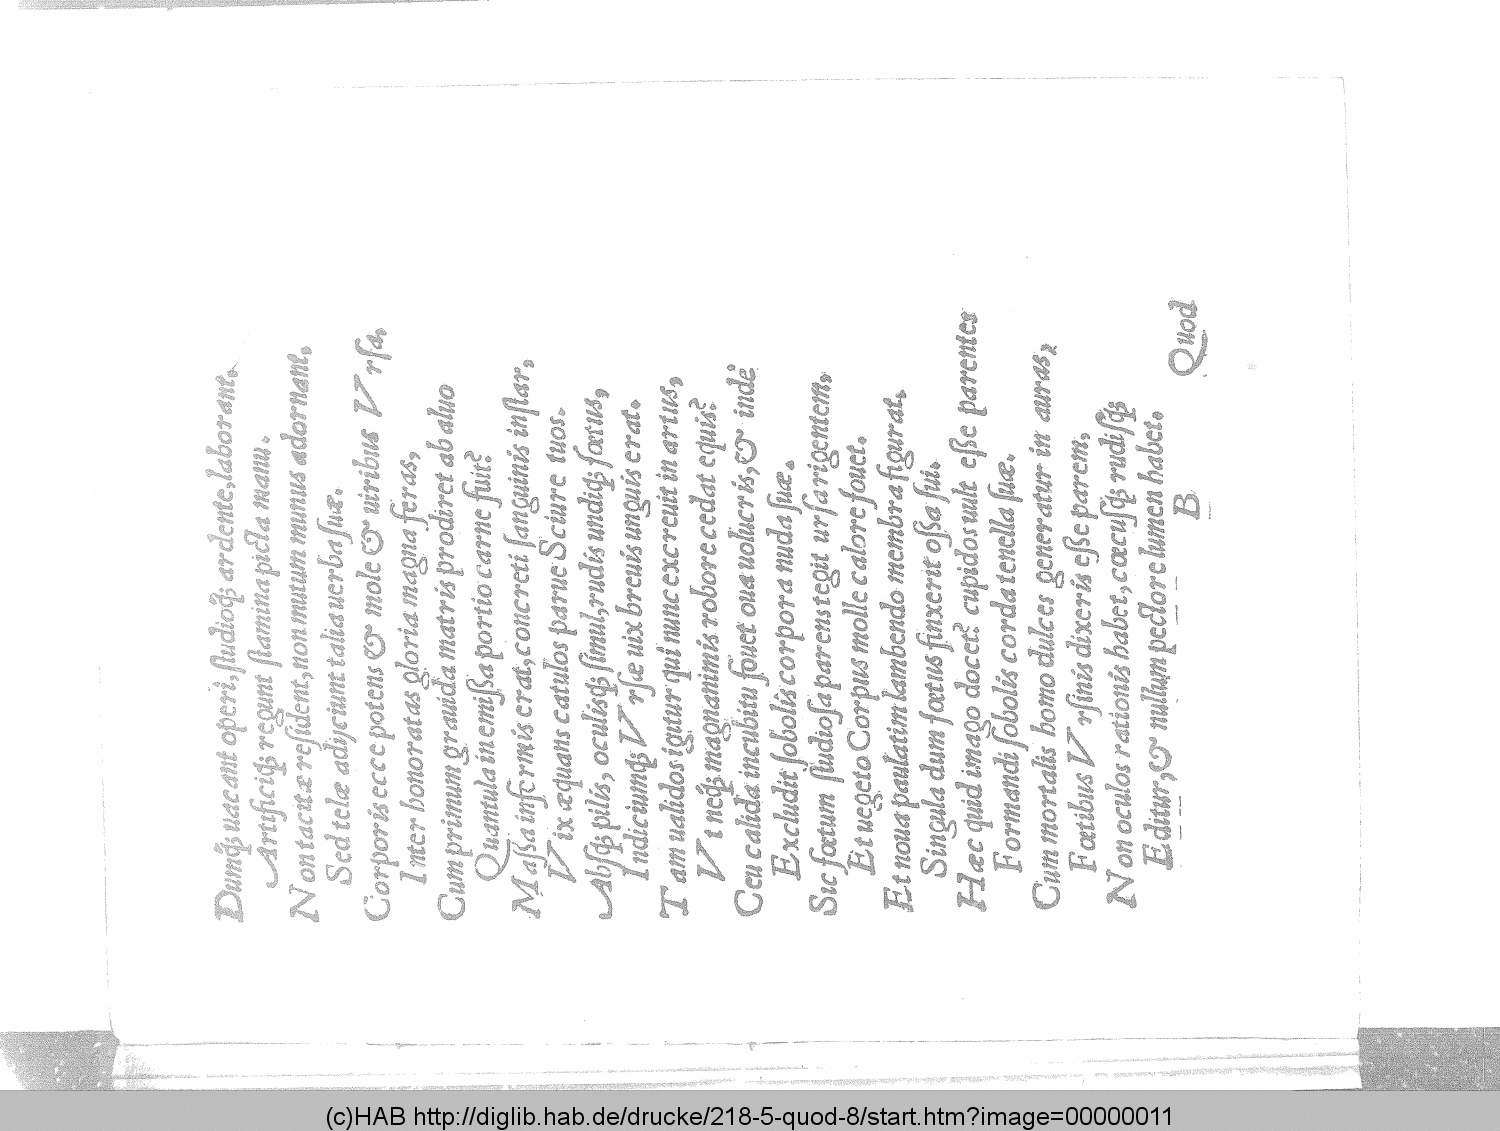 Dumq́; uacant operi, ſtudioq́; ardente, laborant,
Artificiq; regunt ſtamina picta manu.
Non tacitæ reſident, non mutum munus adornant,
Sed telæ adijciunt talia uerba ſuæ.
Corporis ecce potens & mole & uiribus Vrſa,
Inter honoratas gloria magna feras,
Cum primum grauida matris prodiret ab aluo
Quantula in emiſſa portio carne fuit?
Maſſa informis erat, concreti ſanguinis inſtar,
Vix æquans catulos parue Sciure tuos.
Abſq; pilis, oculisq; ſimul, rudis undiq; fœtus,
Indiciumq; Vrſæ uix breuis unguis erat.
Tam ualidos igitur qui nunc excreuit in artus,
Vt neq; magnanimis robore cedat equis?
Ceu calida incubitu fouet oua uolucris, & indè
Excludit ſobolis corpora nuda ſuæ.
Sic fœtum ſtudioſa parens tegit urſa rigentem,
Et uegeto Corpus molle calore fouet.
Et noua paulatim lambendo membra figurat,
Singula dum fœtus finxerit oſſa ſui.
Hæc quid imago docet? cupidos uult eſſe parentes
Formandi ſobolis corda tenella ſuæ.
Cum mortalis homo dulces generatur in auras,
Fœtibus Vrſinis dixeris eſſe parem,
Non oculos rationis habet, cœcuſq; rudiſq́;
Editur, & nullum pectore lumen habet.
B Quod
(c)HAB http://diglib.hab.de/drucke/218-5-quod-8/start.htm?image=00000011